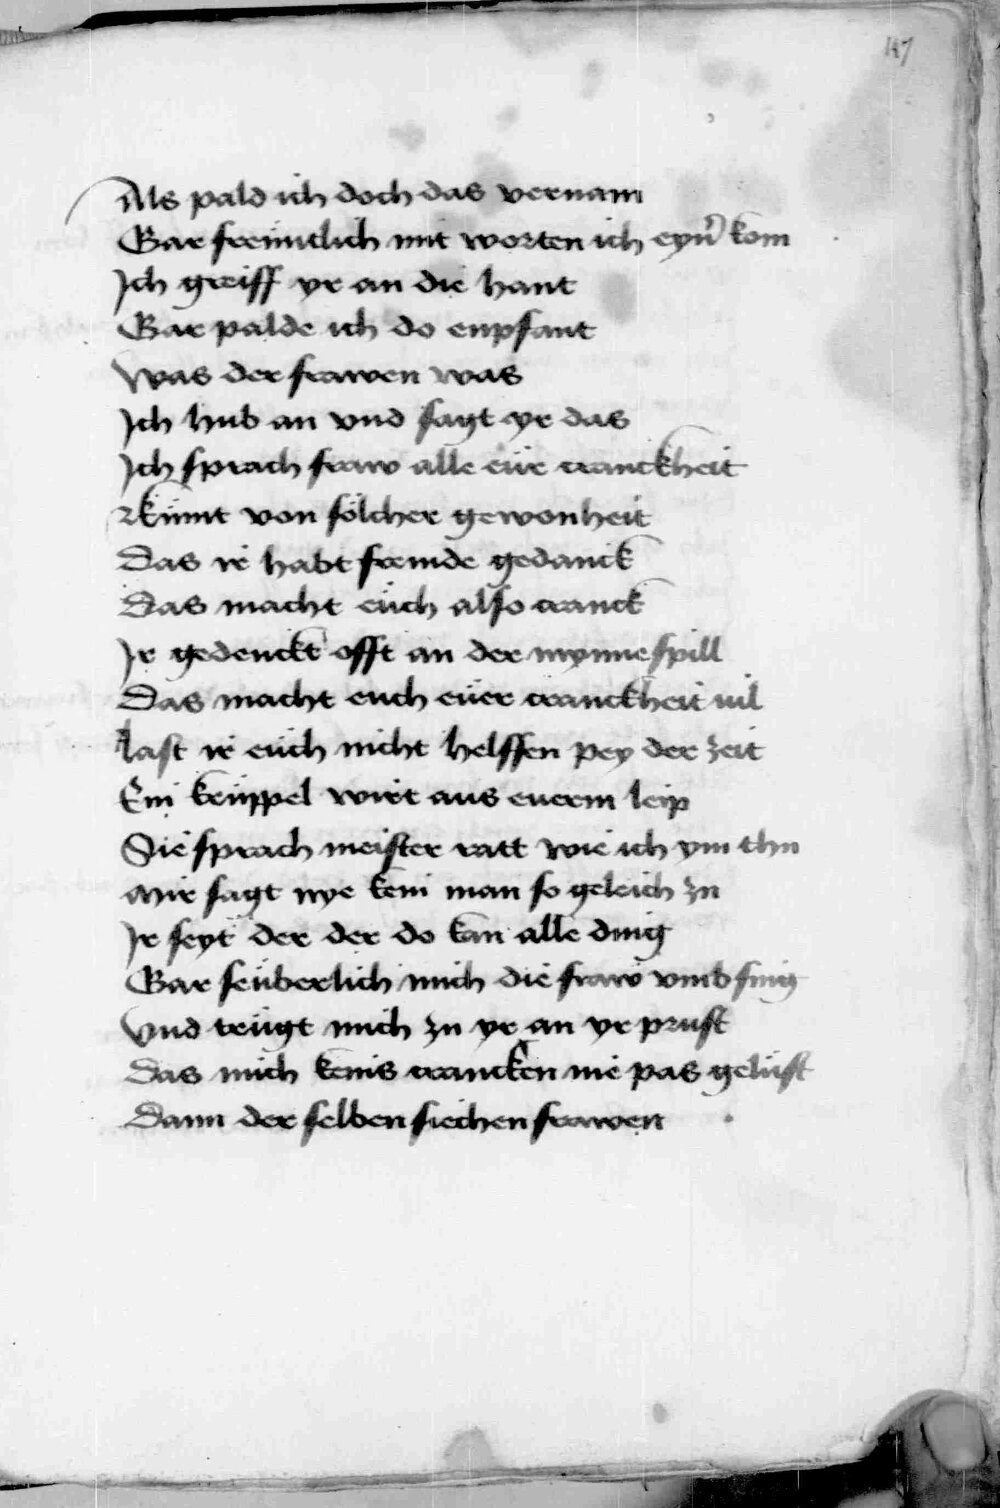 147
Als pald ich doch das vernam
Gar freüntlich mit worten ich eyn kom
Ich greiff yr an die hant
Gar palde ich do enpfant
Was der frawen was
Ich hub an vnd sagt yr das
Ich sprach fraw alle eür cranckheit
kümt von sölcher gewonheit
Das ir habt fremde gedanck
Das macht eüch also cranck
Ir gedenckt offt an der mynne spill
Das macht euch eüer cranckheit vil
last ir eüch nicht helffen pey der zeit
Ein krüppel wirt aus euerm leip
Sie sprach meister ratt wie ich ym thu
Mir sagt nye kein man so geleich zu
Ir seyt der der do kan alle ding
Gar seüberlich mich die fraw vmb fing
Vnd trügt mich zu yr an yr prust
Das mich keins crancken nie pas gelüst
Dann der selben siechen frawen